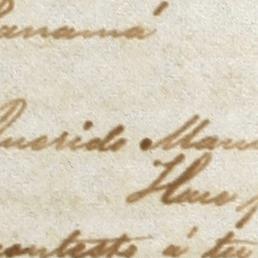 Panamá
Querido Man
Hace
contesto á tu